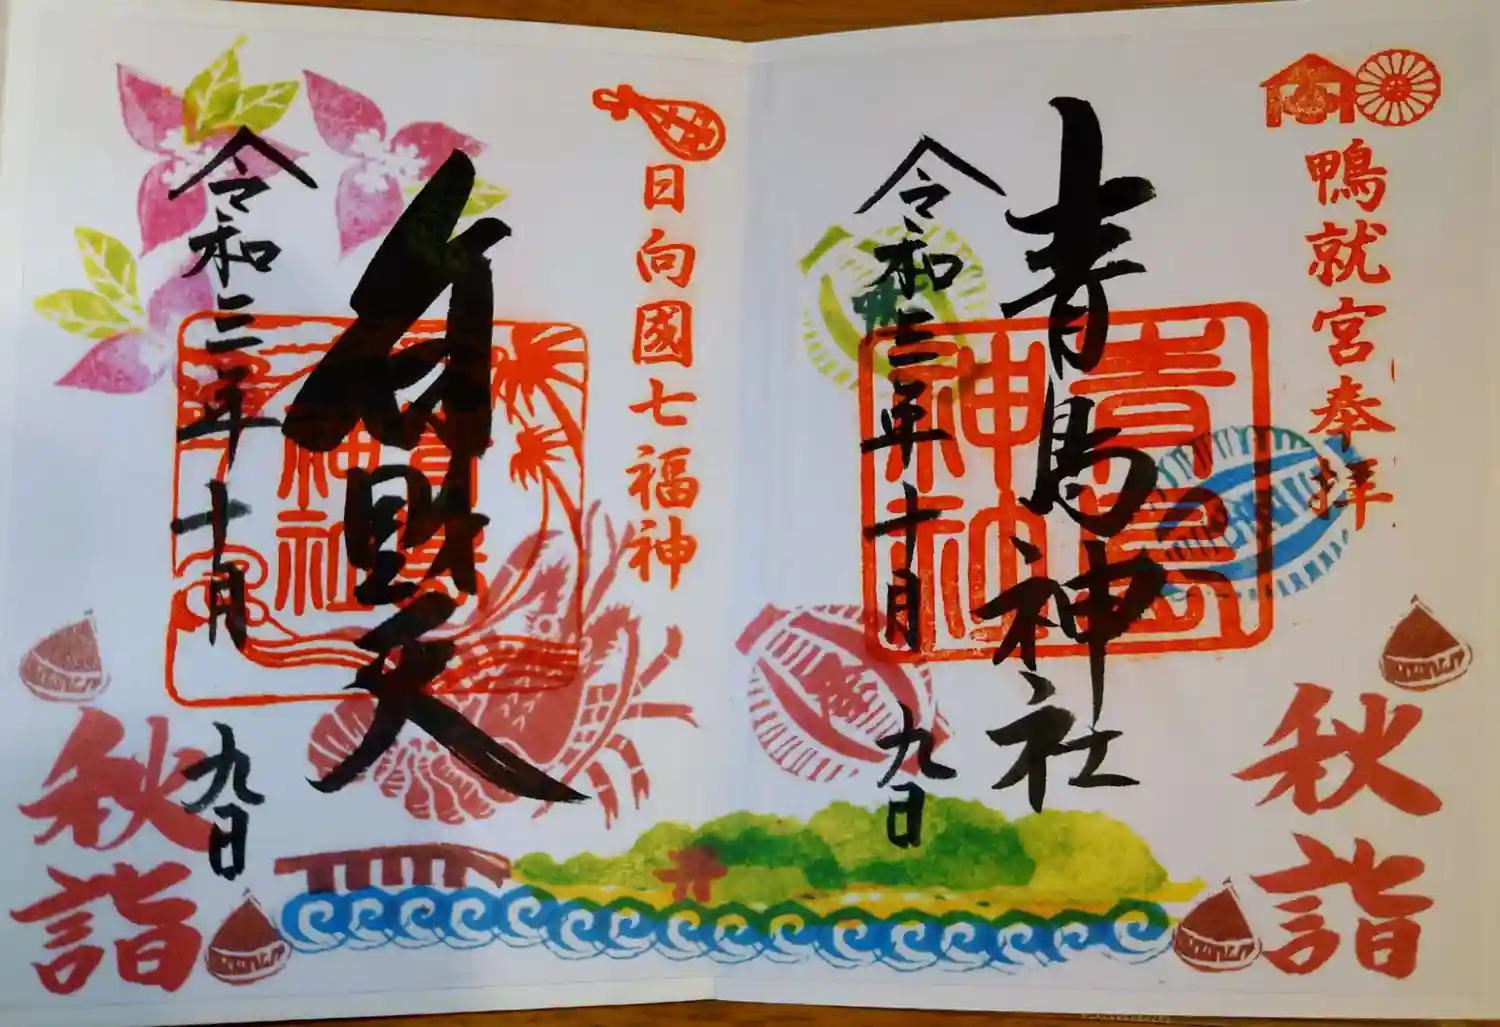 鴨就宮奉拝
青島神社
青島神社
令和三年十月九日
秋詣
日向國七福神
弁財天
青島神社
令和三年十月九日
秋詣